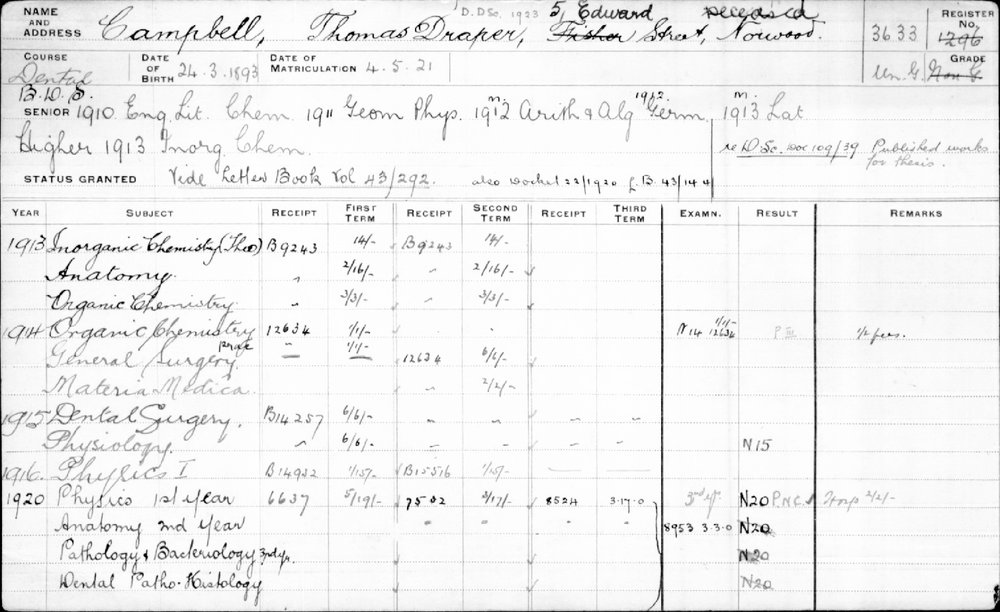 NAME AND ADDRESS Campbell, Thomas Draper, D.D.Sc. 1923 57 Edward Fisher Street, Norwood. deceased
3633 REGISTER NO. 1296
COURSE Dental B.D.S. DATE OF BIRTH 24.3.1893 DATE OF MATRICULATION 4.5.21 GRADE Un. G Non G
SENIOR 1910 Eng. Lit. Chem. 1911 Geom Phys. 1912 Arith & Alg 1912 Germ. 1913 Lat
Higher 1913 Inorg. Chem. re D.Sc. Doc 109/39 Published works for thesis.
STATUS GRANTED Vide Letter Book Vol 43/292. also Docket 22/1920 L.B. 43/144
YEAR SUBJECT RECEIPT FIRST TERM RECEIPT SECOND TERM RECEIPT THIRD TERM EXAMN. RESULT REMARKS
1913 Inorganic Chemistry (Theo) B9243 14/- B9243 14/-
Anatomy. " 2/16/- " 2/16/-
Organic Chemistry " 3/3/- " 3/3/-
1914 Organic Chemistry 12634 1/1/- N14 1/1/- 12634 P III 1/2 fees.
General Surgery. prac " 1/1/- 12634 6/6/-
Materia Medica. " 2/2/-
1915 Dental Surgery. B14257 6/6/- " " " "
Physiology. " 6/6/- " " " " N15
1916. Physics I B14922 1/15/- B15516 1/15/-
1920 Physics 1st year 6637 5/19/- 7502 3/17/- 8524 3.17.0 3rd yr. N20 P.N.C. Hosp 2/2/-
Anatomy 2nd year " " " " 8953 3.3.0 N20
Pathology & Bacteriology 3rd yr. N20
Dental Patho-Histology N20